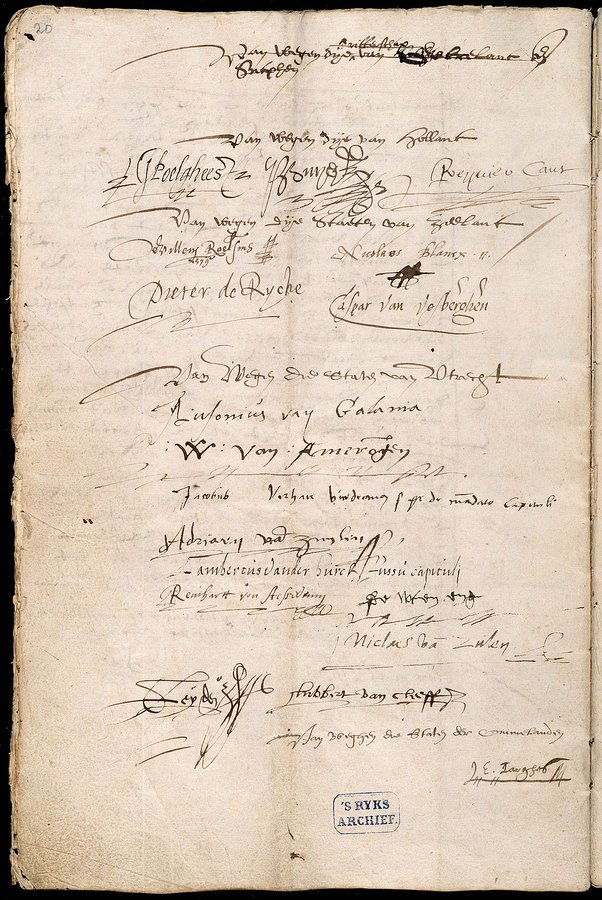 20
Van wegen dije van Ritterschap Gelrelant en
Sutphen
Van wegen dije van Hollant
G Poelgheest P Buys Reynier Cant
Van wegen dije Staeten van Zeelant
Willem Roelsius Nicolaes Blancx
Pieter de Rycke Caspar van Vosberghen
Van wegen die Staten van Utrecht
Antonius van Galama
W: van: Amerongen
Jacobus Verhaer de mandato Capituli
Adriaen van Zuylen
Lambertus vander Burch Jussu capituli
Reinhart von Aeswinn
de wten eng
Niclaes van Zulen
Leyden Lubbert van Cleeff
Van weghen die Staten der Ommelanden
E. Jarghes
'S RYKS
ARCHIEF.